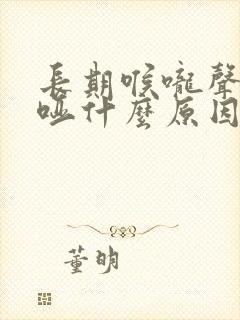 長期喉嚨聲
啞什麼原因
董明